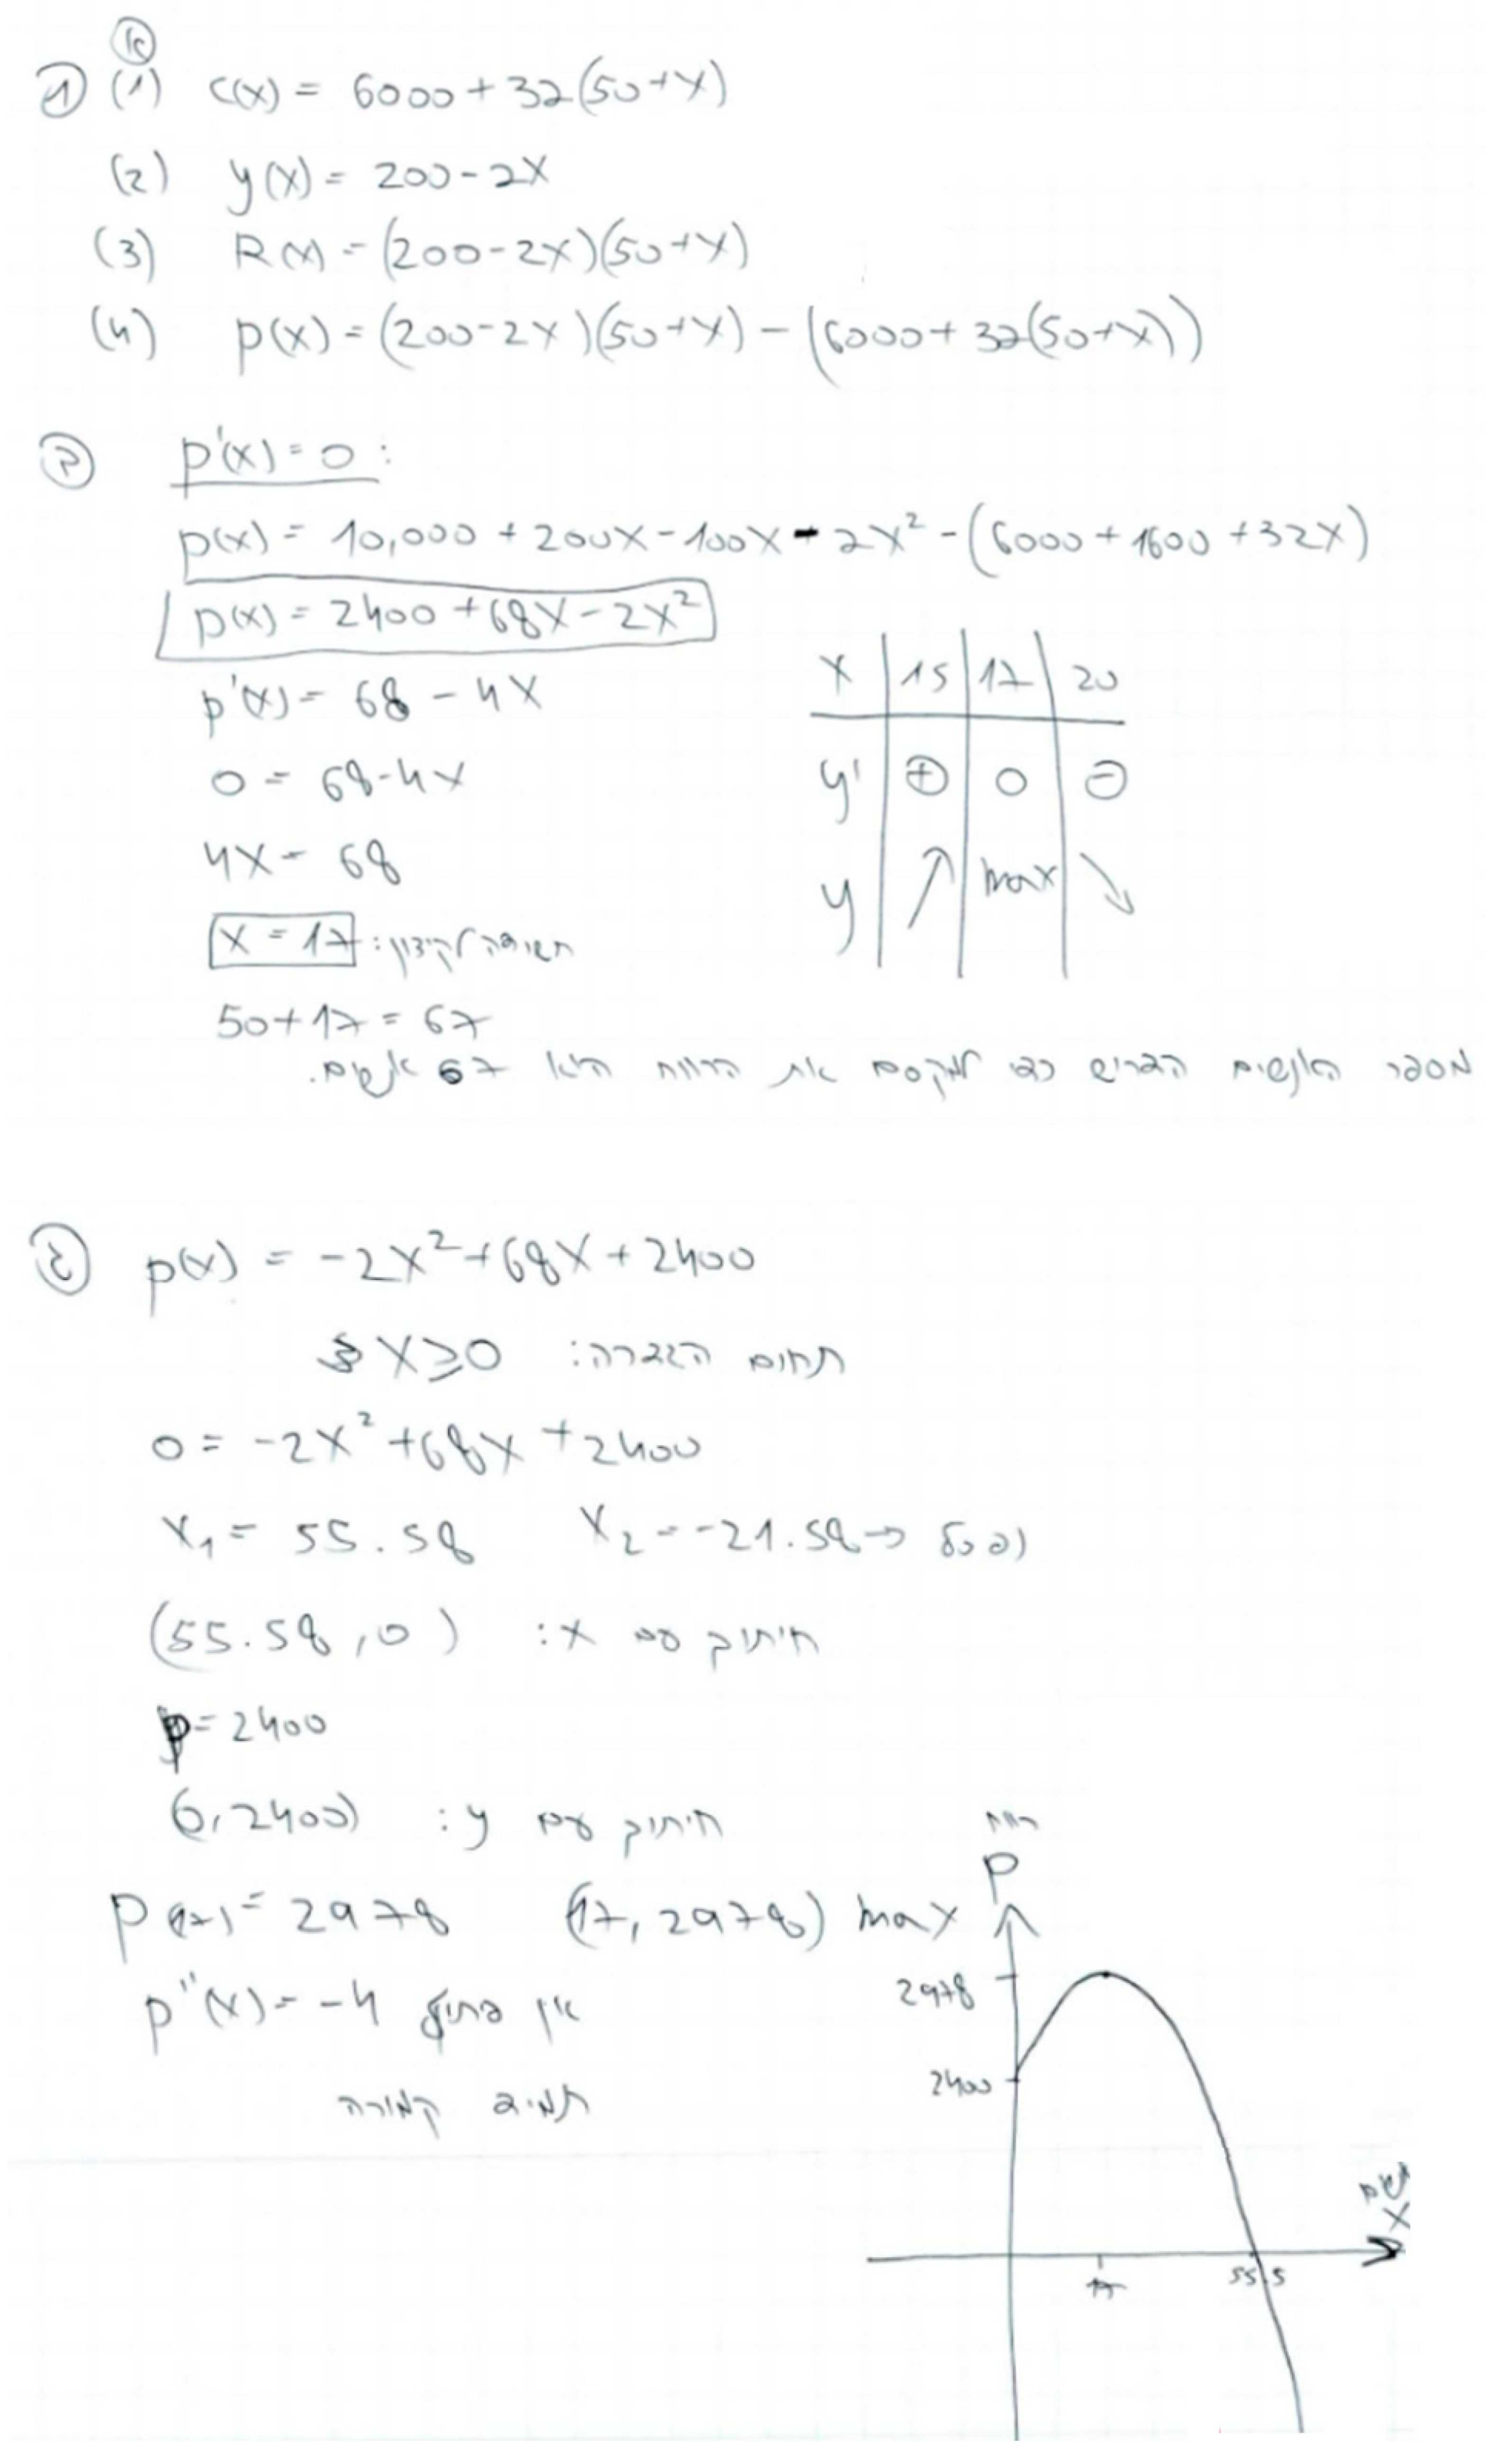 א
① (1) C(x) = 6000 + 32(50+x)
(2) y(x) = 200 - 2x
(3) R(x) = (200-2x)(50+x)
(4) p(x) = (200-2x)(50+x) - (6000+32(50+x))
ב p'(x) = 0 :
p(x) = 10,000 + 200x - 100x - 2x² - (6000 + 1600 + 32x)
p(x) = 2400 + 68x - 2x²
p'(x) = 68 - 4x
0 = 68 - 4x
4x = 68
x = 17 : חשודה לקיצון
50 + 17 = 67
x | 15 | 17 | 20
y' | + | 0 | -
y | ↗ | max | ↘
מספר האנשים הדרוש כדי למקסם את הרווח הוא 67 אנשים.
ג p(x) = -2x² + 68x + 2400
תחום הגדרה: x ≥ 0
0 = -2x² + 68x + 2400
x₁ = 55.58 x₂ = -21.58 → נפסל
חיתוך עם x: (55.58, 0)
p = 2400
חיתוך עם y: (0, 2400)
p(17) = 2978 (17, 2978) max
p''(x) = -4 אין פיתול
תמיד קמורה
רווח
P
2978
2400
17
55.5
אנשים
X